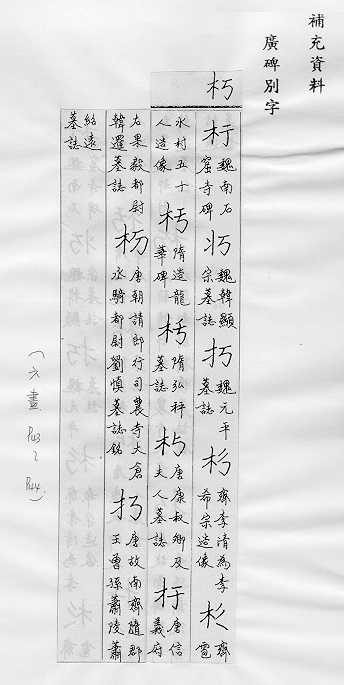 補充資料
廣碑別字
朽
杇 魏南石窟寺碑 㭃 魏韓顯宗墓誌 扝 魏元平墓誌 杉 齊李清為李希宗造像 齊雹
水村五十人造像 隋造龍華碑 隋弘秤墓誌 唐康叔卿及夫人墓誌 杅 唐信義府
右果毅都尉韓邏墓誌 唐朝請郎行司農寺太倉丞騎都尉劉慎墓誌銘 唐故南齊隨郡王曾孫蕭陵蕭
紹遠墓誌
(六畫 P43~P44.)